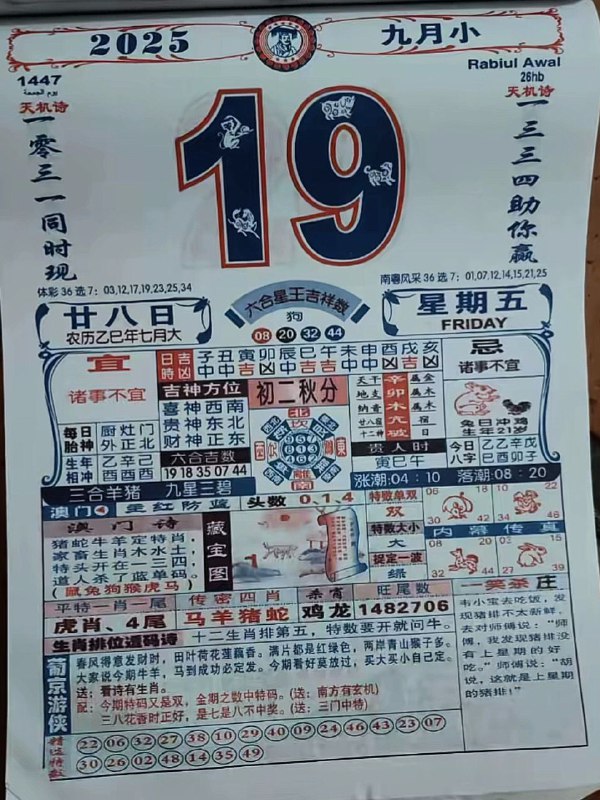 2025
九月小
1447
Rabiul Awal
26hb
天机诗
天机诗
一零三一同时现
一三三四助你赢
19
体彩36选7：03,12,17,19,23,25,34
南粤风采36选7：01,07,12,14,15,21,25
廿八日
农历乙巳年七月大
六合星王吉祥数
狗
08 20 32 44
星期五
FRIDAY
宜
诸事不宜
日時 吉凶
子丑寅卯辰巳午未申酉戌亥
忌
诸事不宜
吉神方位
喜神西南
贵神东北
财神正东
初二秋分
天干 辛 属金
地支 卯 属木
纳音 木 属木
廿八宿 亢 宿
十二神 破 日
兔日冲鸡
每日胎神
厨灶门
外正北
生年相冲
乙辛己
酉酉酉
六合吉数
19 18 35 07 44
北
南
贵人时
寅巳午
今日八字
乙乙辛戊
巳酉卯子
三合羊猪
九星三碧
涨潮:04:10
落潮:08:20
澳门
主红防蓝
头数
0,1,4
特数单双
双
特数大小
大
捉定一波
绿
06 18
30 42
10 22
08 20
03 15
27 39
内幕传真
澳门诗
猪蛇牛羊定特肖，
家畜生肖木水土，
特头开在一三四，
道人杀了蓝单码。
（鼠兔狗猴虎马）
藏宝图
平特一肖一尾
虎肖、4尾
传密四肖
马羊猪蛇
杀肖
鸡龙
旺尾数
1482706
一笑杀庄
韦小宝去吃饭，发
现猪排不太新鲜，
去对师傅说：“师
傅，我发现猪排没
有上星期的好
吃。”师傅说：“胡
说，这就是上星期
的猪排！”
生肖排位透码诗
十二生肖排第五，特数要开就问牛。
葡京游侠
春风得意发财时，田叶荷花莲藕香。满片都是红绿色，两岸青山猴子多。
大家说今期牛羊，马到成功必定发。今期看好莫放过，买大买小自己定。
送：看诗有生肖。
配：今期特码又是双，金期之数中特码。(送：南方有玄机)
三八花香时正好，是七是八不中奖。(送：三门中特)
精选特数
22 06 32 27 38 10 29 40 09 24 46 43 23 07
30 26 02 48 14 35 49